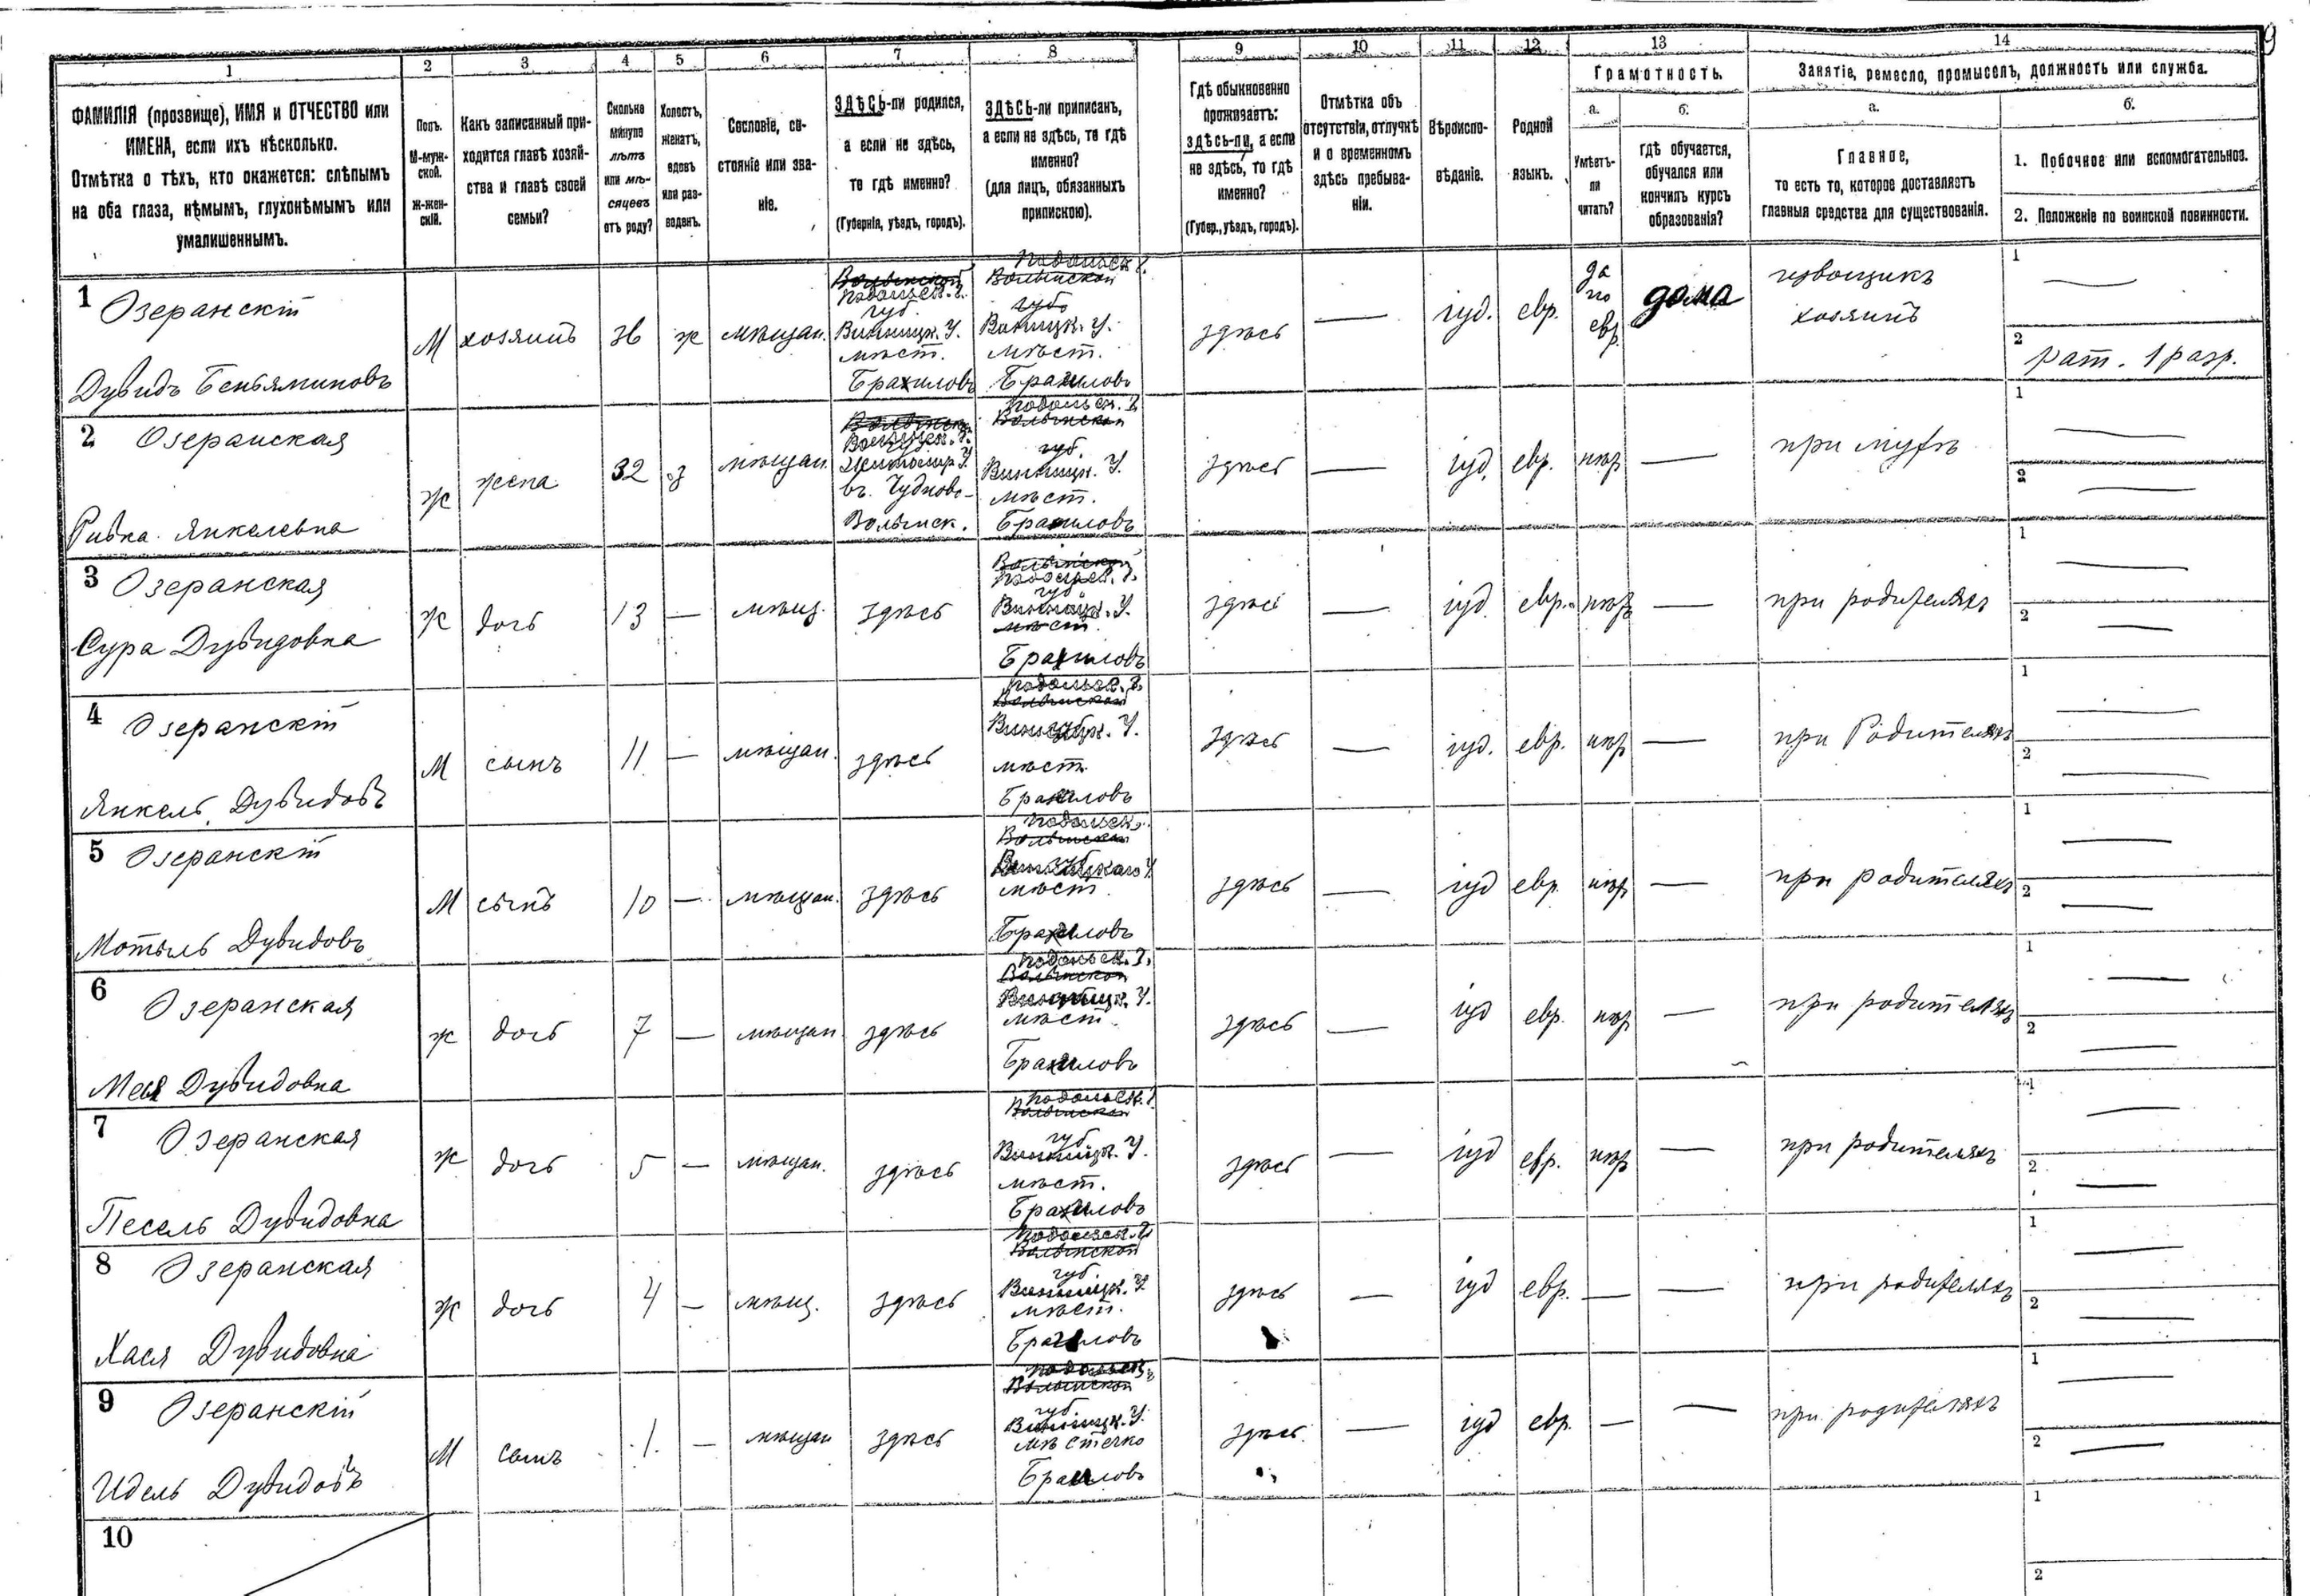 9
1 2 3 4 5 6 7 8 9 10 11 12 13 14
ФАМИЛІЯ (прозвище), ИМЯ и ОТЧЕСТВО или
ИМЕНА, если ихъ нѣсколько.
Отмѣтка о тѣхъ, кто окажется: слѣпымъ
на оба глаза, нѣмымъ, глухонѣмымъ или
умалишеннымъ.
Полъ.
М-муж-
ской.
ж-жен-
скій.
Какъ записанный при-
ходится главѣ хозяй-
ства и главѣ своей
семьи?
Сколько
минуло
лѣтъ
или мѣ-
сяцевъ
отъ роду?
Холостъ,
женатъ,
вдовъ
или раз-
веденъ.
Сословіе, со-
стояніе или зва-
ніе.
ЗДѢСЬ-ли родился,
а если не здѣсь,
то гдѣ именно?
(Губернія, уѣздъ, городъ).
ЗДѢСЬ-ли приписанъ,
а если не здѣсь, то гдѣ
именно?
(для лицъ, обязанныхъ
припискою).
Гдѣ обыкновенно
проживаетъ:
здѣсь-ли, а если
не здѣсь, то гдѣ
именно?
(Губер., уѣздъ, городъ).
Отмѣтка объ
отсутствіи, отлучкѣ
и о временномъ
здѣсь пребыва-
ніи.
Вѣроиспо-
вѣданіе.
Родной
языкъ.
Грамотность.
а.
Умѣетъ-
ли
читать?
б.
гдѣ обучается,
обучался или
кончилъ курсъ
образованія?
Занятіе, ремесло, промыселъ, должность или служба.
а.
Главное,
то есть то, которое доставляетъ
главныя средства для существованія.
б.
1. Побочное или вспомогательное.
2. Положеніе по воинской повинности.
1
Озеранскій
Дувидъ Беньяминовъ
М
хозяинъ
36
ж
мѣщан.
Волынской
Подольск. г.
губ.
Винницк. У.
мѣст.
Браиловъ
Подольск. г.
Волынской
губ.
Винницк. У.
мѣст.
Браиловъ
здѣсь
іуд.
евр.
да
по
евр.
дома
извощикъ
хозяинъ
1
2
рат. 1 разр.
2
Озеранская
Ривка Янкелевна
ж
жена
32
з
мѣщан.
Житомир. У.
Волынск.
Подольск. г.
Волынской
губ.
Винницк. У.
мѣст.
Браиловъ
здѣсь
іуд.
евр.
нѣтъ
при мужѣ
1
2
3
Озеранская
Сура Дувидовна
ж
дочь
13
мѣщ.
здѣсь
Волынской
Подольск. г.
губ.
Винницк. У.
мѣст.
Браиловъ
здѣсь
іуд.
евр.
нѣтъ
при родителяхъ
1
2
4
Озеранскій
Янкель Дувидовъ
М
сынъ
11
мѣщан.
здѣсь
Подольск. г.
Волынской
Винницк. У.
мѣст.
Браиловъ
здѣсь
іуд.
евр.
нѣтъ
при Родителяхъ
1
2
5
Озеранскій
Мотыль Дувидовъ
М
сынъ
10
мѣщан.
здѣсь
Подольск.
Волынской
Винницкаго У.
мѣст.
Браиловъ
здѣсь
іуд
евр.
нѣтъ
при родителяхъ
1
2
6
Озеранская
Дувидовна
ж
дочь
7
мѣщан.
здѣсь
Подольск. г.
Волынской
Винницк. У.
мѣст.
Браиловъ
здѣсь
іуд
евр.
нѣтъ
при родителяхъ
1
2
7
Озеранская
Песель Дувидовна
ж
дочь
5
мѣщан.
здѣсь
Подольск. г.
Волынской
губ.
Винницк. У.
мѣст.
Браиловъ
здѣсь
іуд
евр.
нѣтъ
при родителяхъ
1
2
8
Озеранская
Хася Дувидовна
ж
дочь
4
мѣщ.
здѣсь
Подольск. г.
Волынской
губ.
Винницк. У.
мѣст.
Браиловъ
здѣсь
іуд
евр.
при родителяхъ
1
2
9
Озеранскій
Идель Дувидовъ
М
сынъ
1
мѣщан
здѣсь
Подольск. г.
Волынской
губ.
Винницк. У.
мѣстечко
Браиловъ
здѣсь
іуд
евр.
при родителяхъ
1
2
10
1
2